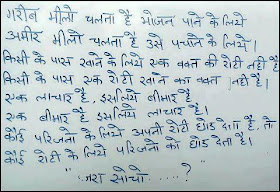 गरीब मीलो चलता है भोजन पाने के लिये
अमीर मीलो चलता है उसे पचाने के लिये।
किसी के पास खाने के लिये एक वक्त की रोटी नहीं है
किसी के पास एक रोटी खाने का वक्त नहीं है।
एक लाचार है, इसलिये बीमार है
एक बीमार है इसलिये लाचार है।
कोई परिजनो के लिये अपनी रोटी छोड देता है, तो
कोई रोटी के लिये परिजनो को छोड देता है।
"जरा सोचो.....?"